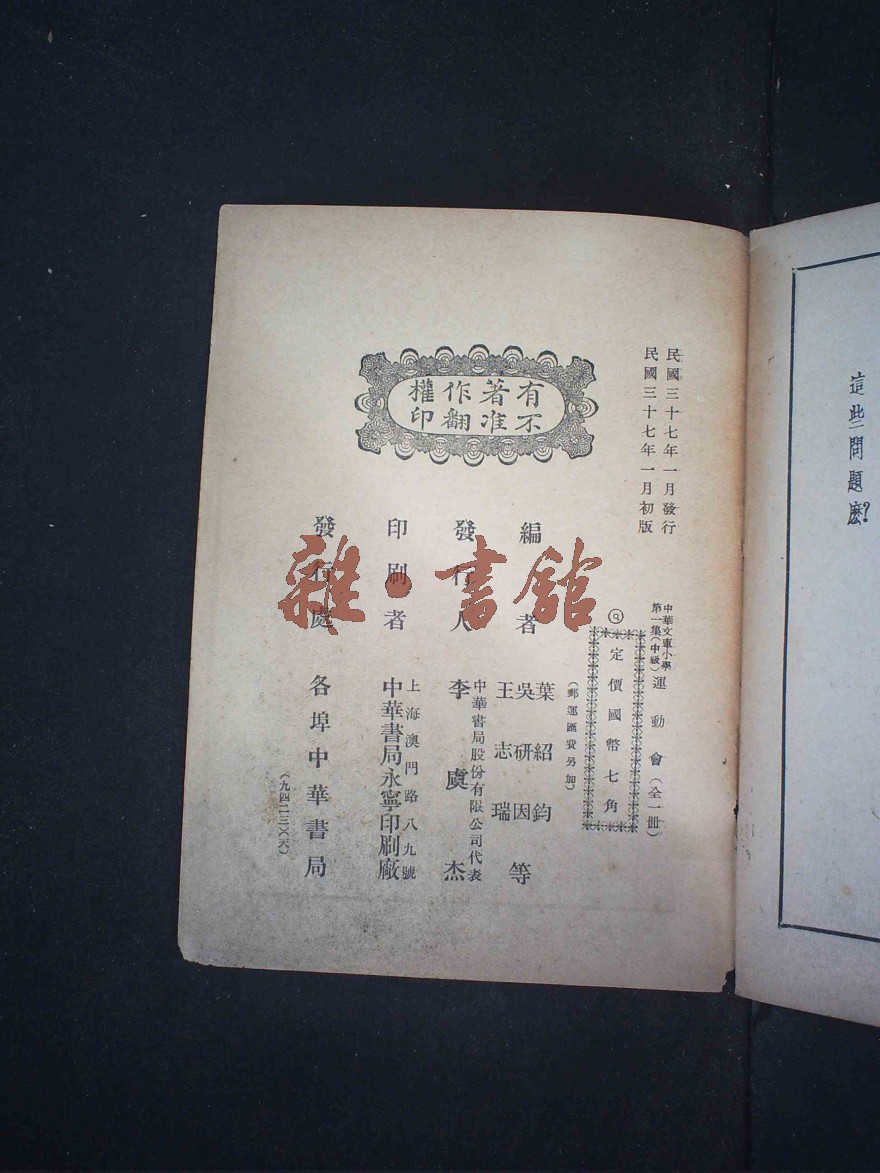 民國三十七年一月發行
民國三十七年一月初版
中華文庫小學
第一集(中級)
運動會(全一冊)
定價國幣七角
(郵運匯費另加)
有著作權
不准翻印
編者
葉紹鈞
吳研因等
王志瑞
發行人
中華書局股份有限公司代表
李虞杰
印刷者
上海澳門路八九號
中華書局永寧印刷廠
發行處
各埠中華書局
(九四二三)(天)
這些問題麽?
雜·書館